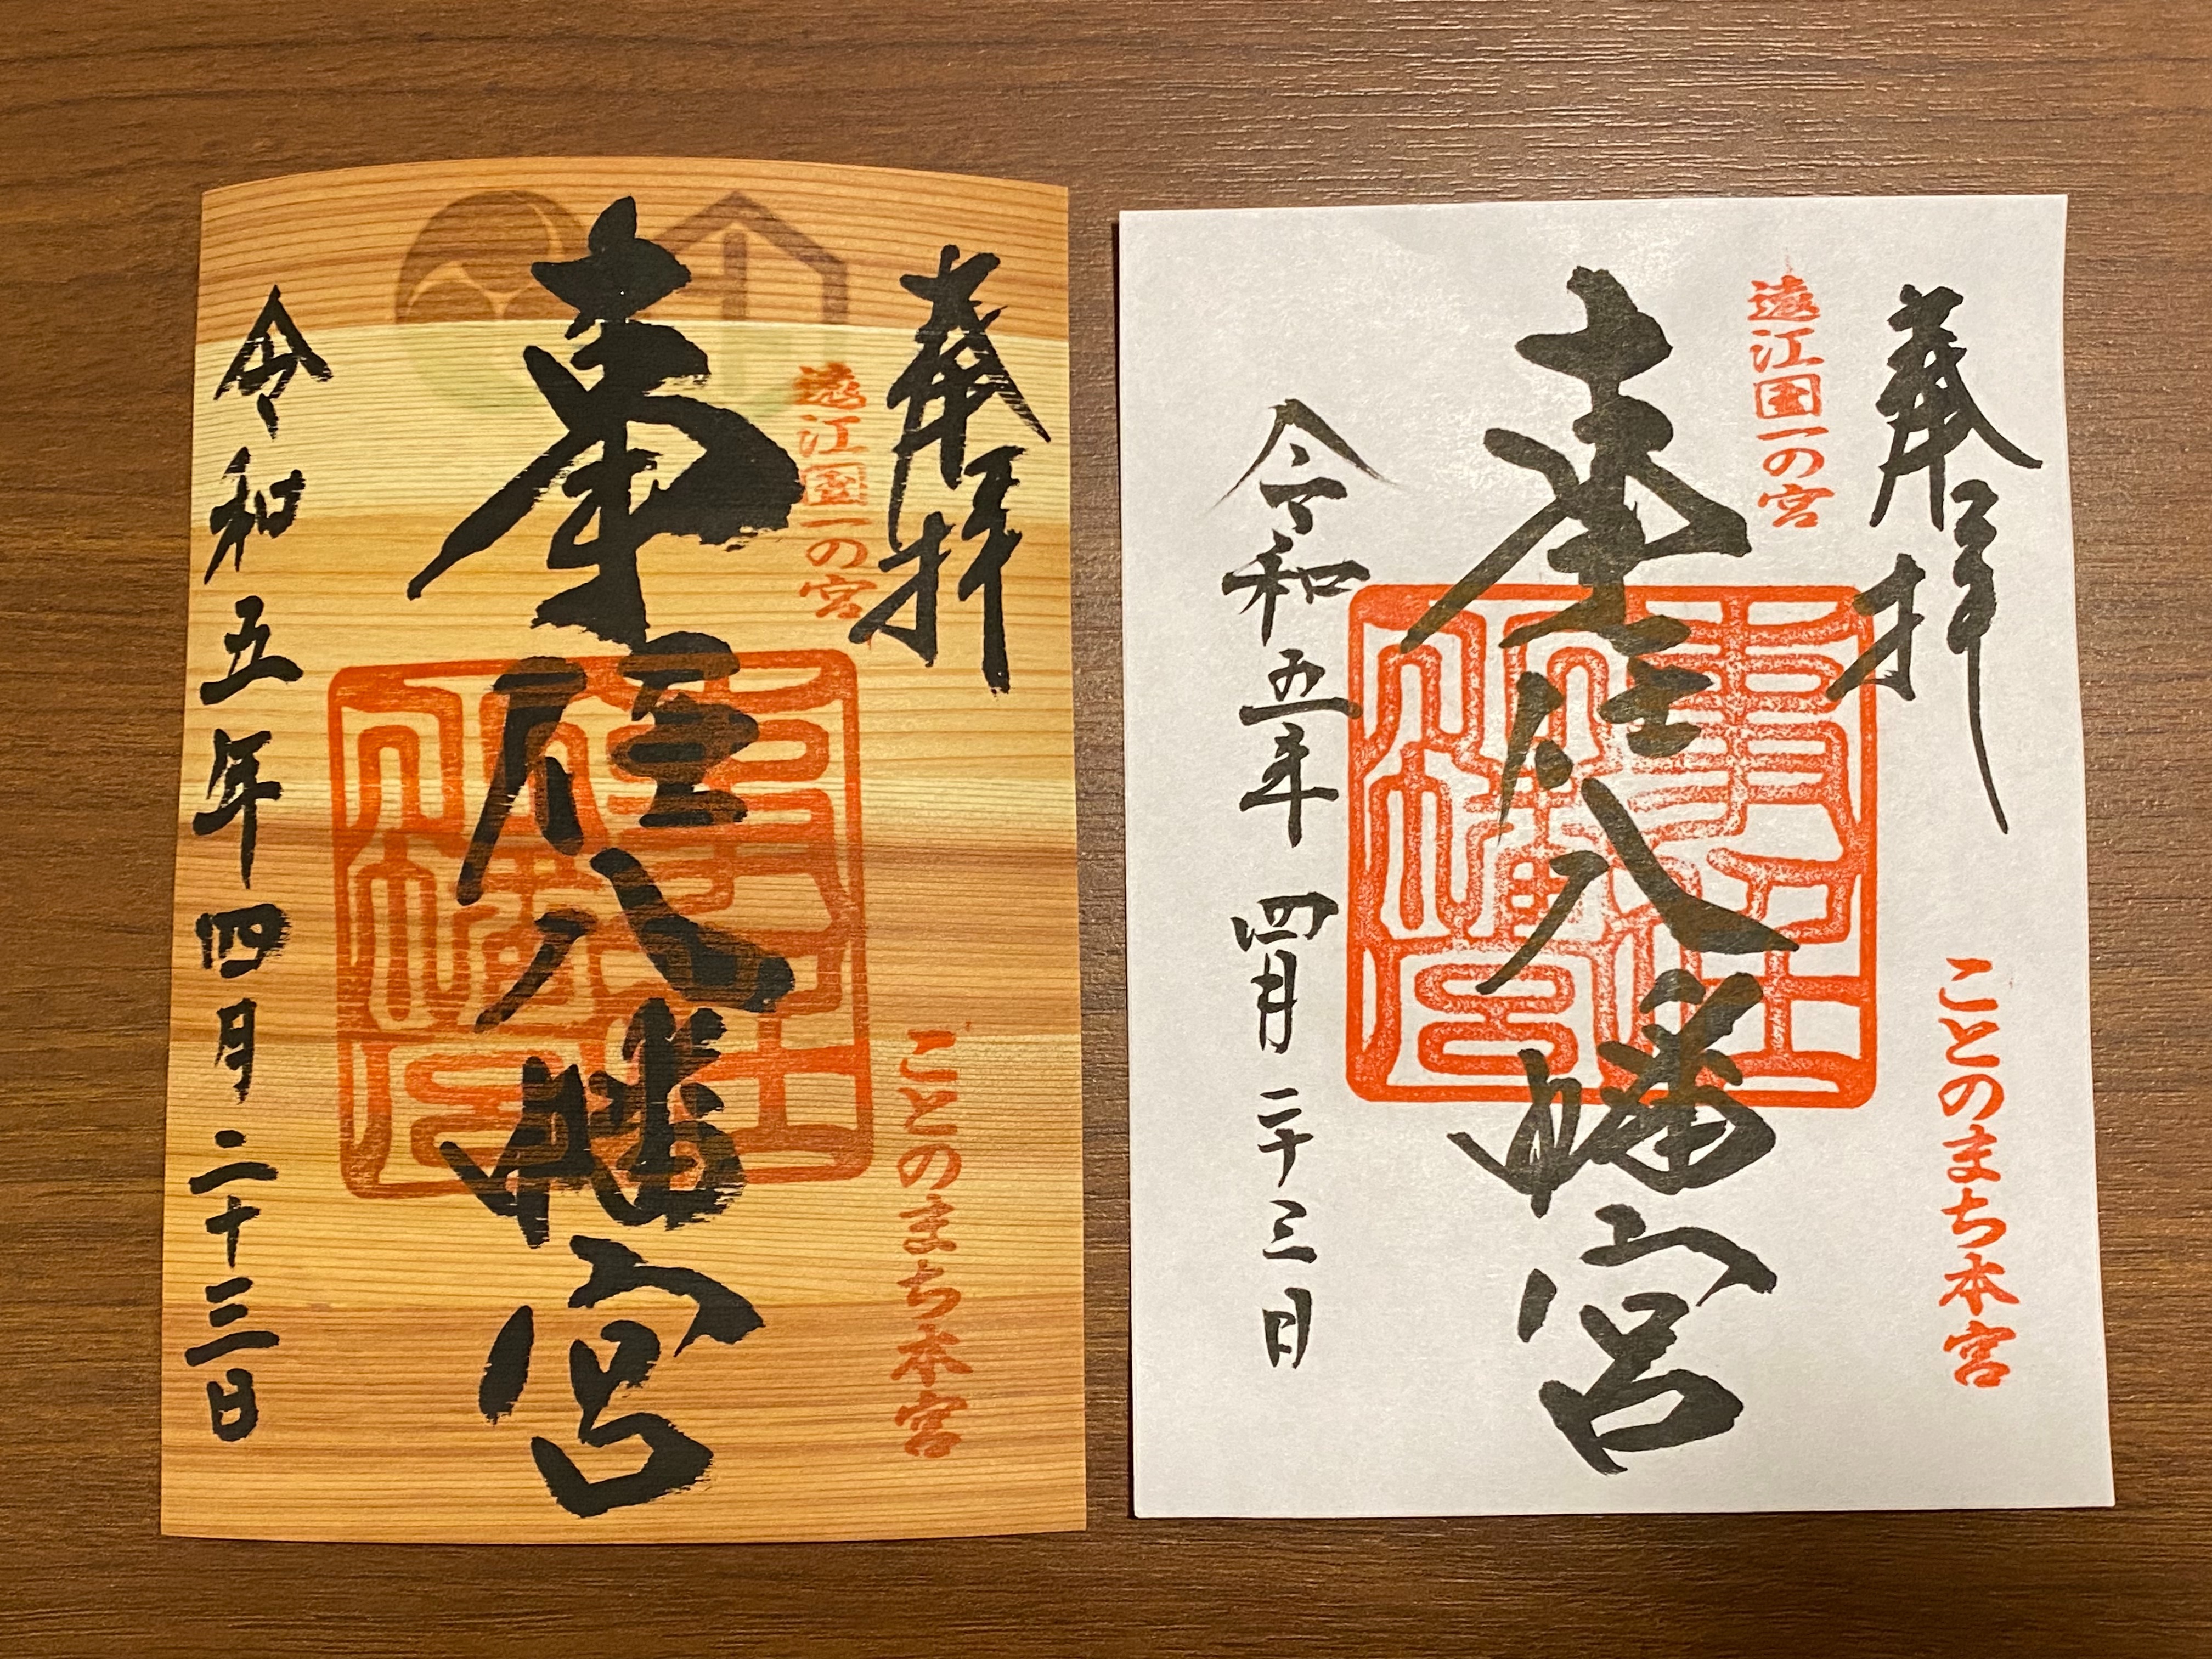 奉拝
遠江国一の宮
ことのまち本宮
事任八幡宮
事任八幡宮
令和五年四月二十三日
奉拝
遠江国一の宮
ことのまち本宮
事任八幡宮
事任八幡宮
令和五年四月二十三日